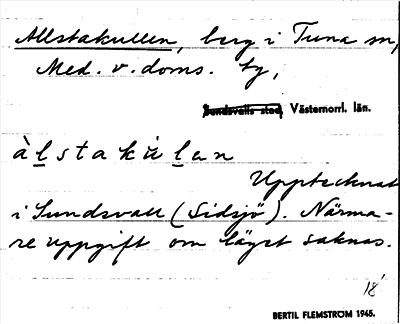 Allstakullen, berg i Tuna sn,
Med. v. doms. tg,
Sundsvalls stad, Västernorrl. län.
àl̲stakùl̲an
Upptecknat
i Sundsvall (Sidsjö). Närma-
re uppgift om läget saknas.
18
BERTIL FLEMSTRÖM 1945.